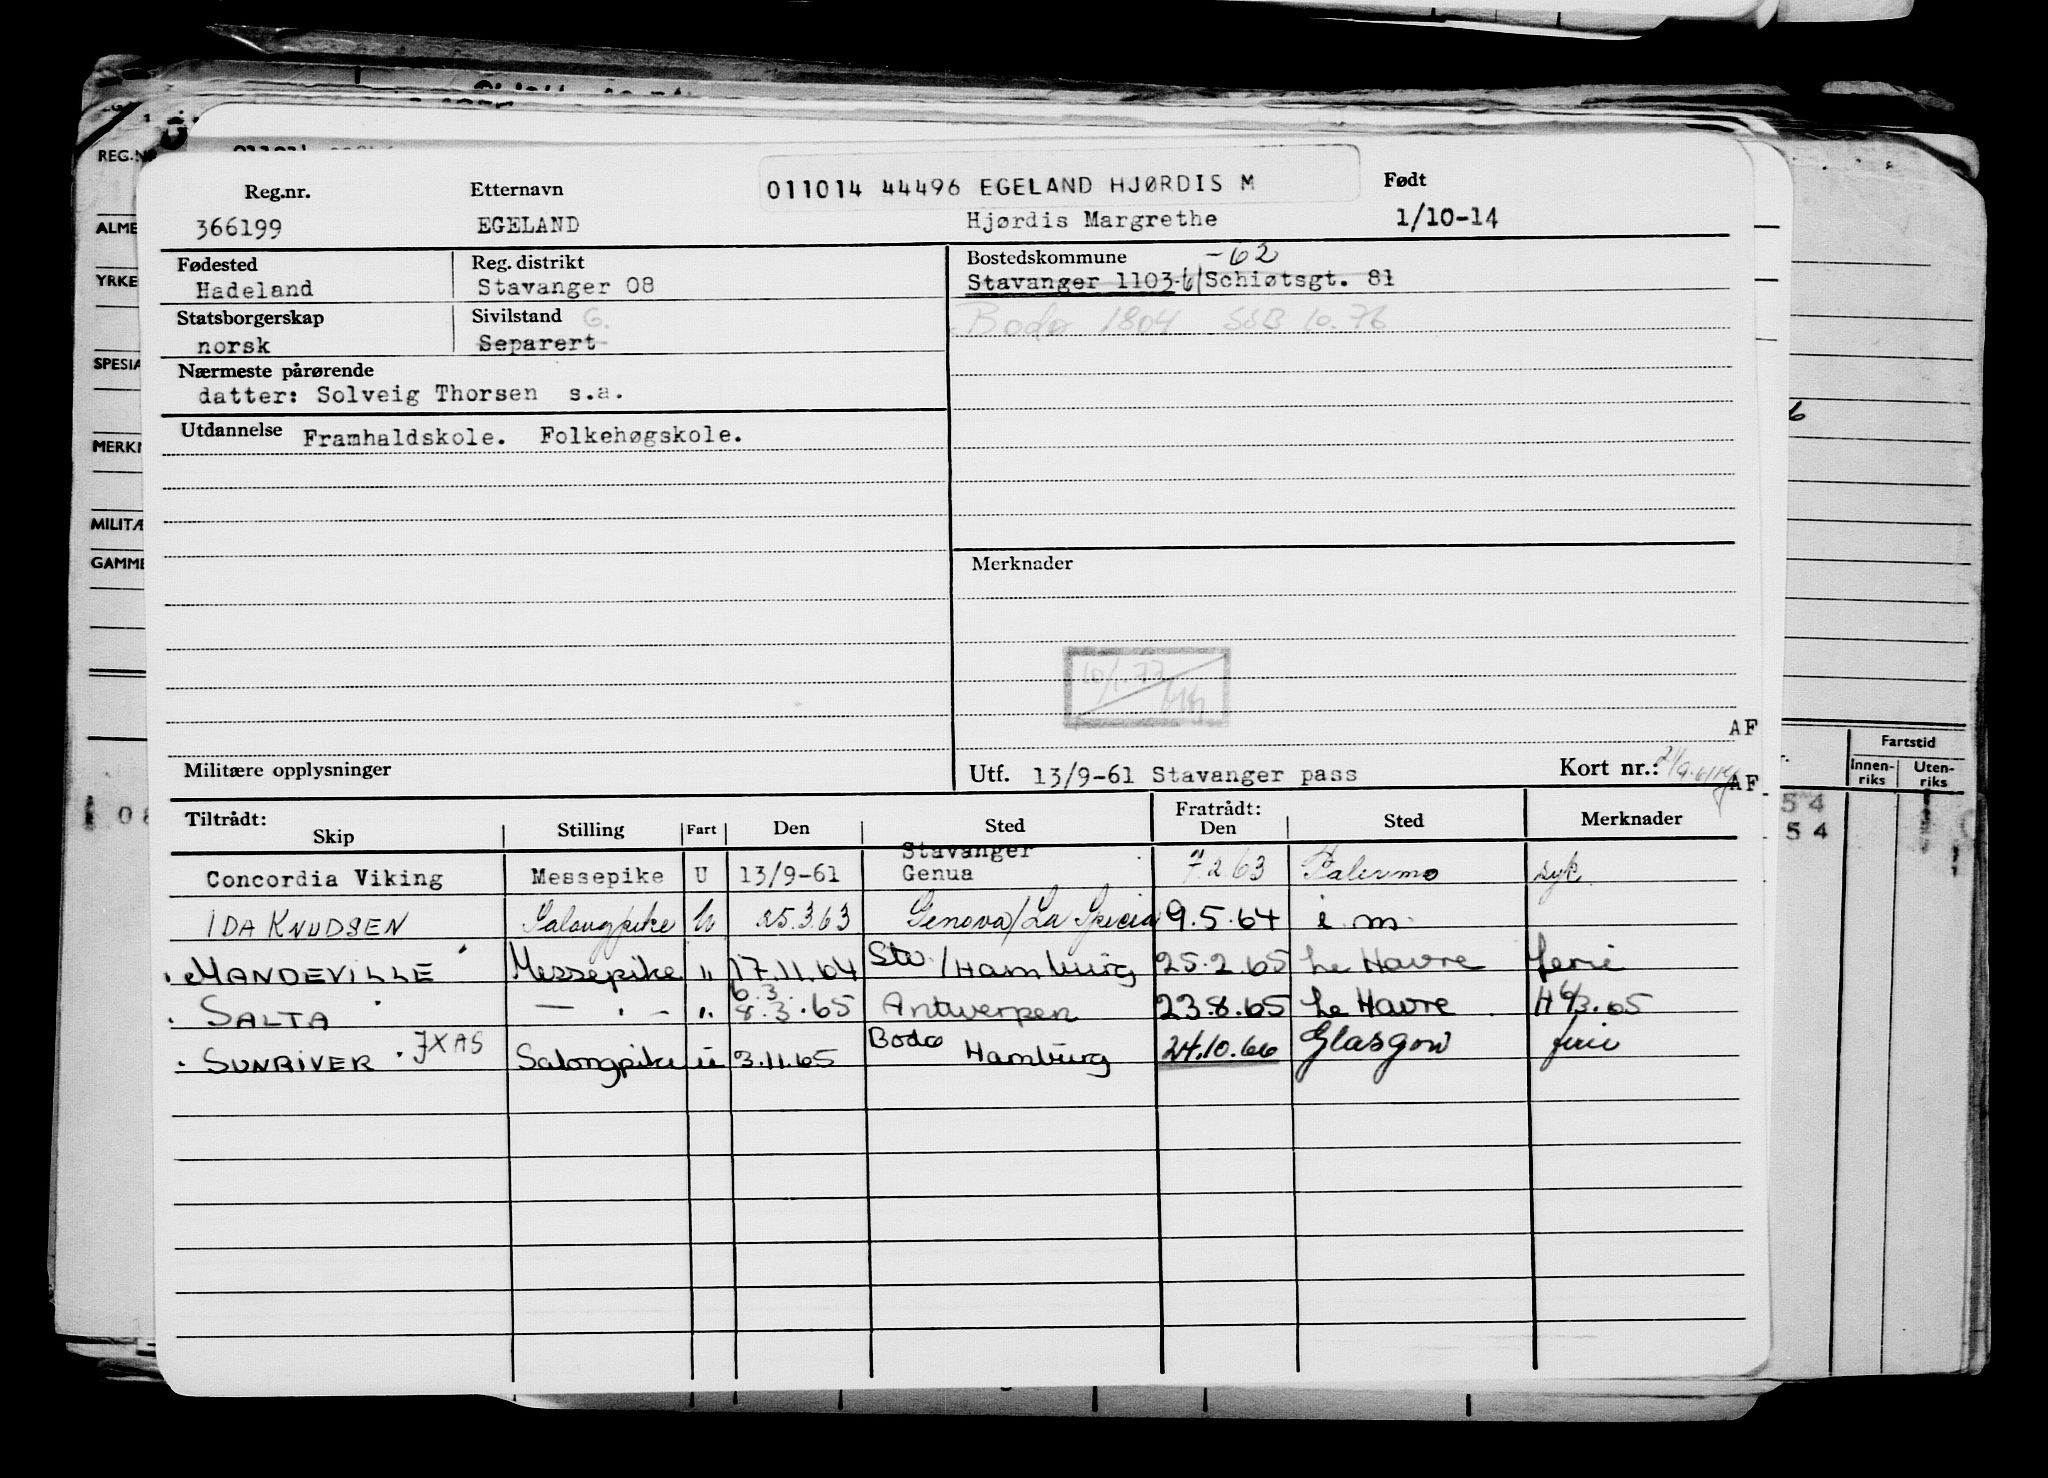 REG.NR
ALME
YRKE
SPESIA
MERKN
MILITÆ
GAMME
Reg.nr. Etternavn 011014 44496 EGELAND HJØRDIS M Født
366199 EGELAND Hjørdis Margrethe 1/10-14
Fødested Reg. distrikt Bostedskommune -62
Hadeland Stavanger 08 Stavanger 1103-61 Schiøtsgt. 81
Statsborgerskap Sivilstand G. Bodø 1804 SSB 10.76
norsk Separert
Nærmeste pårørende
datter: Solveig Thorsen s.a.
Utdannelse Framhaldskole. Folkehøgskole.
Merknader
10/1.77
AF
Militære opplysninger Utf. 13/9-61 Stavanger pass Kort nr.: AF
Fartstid
Innen-riks Uten-riks
08
54
54
Tiltrådt: Fratrådt:
Skip Stilling Fart Den Sted Den Sted Merknader
Stavanger
Concordia Viking Messepike U 13/9-61 Genua 7.2.63 Palermo syk.
IDA KNUDSEN Salongpike U 25.3.63 Genova/La Spezia 9.5.64 i.m.
MANDEVILLE Messepike " 17.11.64 Stv./Hamburg 25.2.65 Le Havre ferie
6.3.
SALTA — . — " 8.3.65 Antwerpen 23.8.65 Le Havre H 6/3.65
SUNRIVER JXAS Salongpike u 3.11.65 Bodø Hamburg 24.10.66 Glasgow ferie